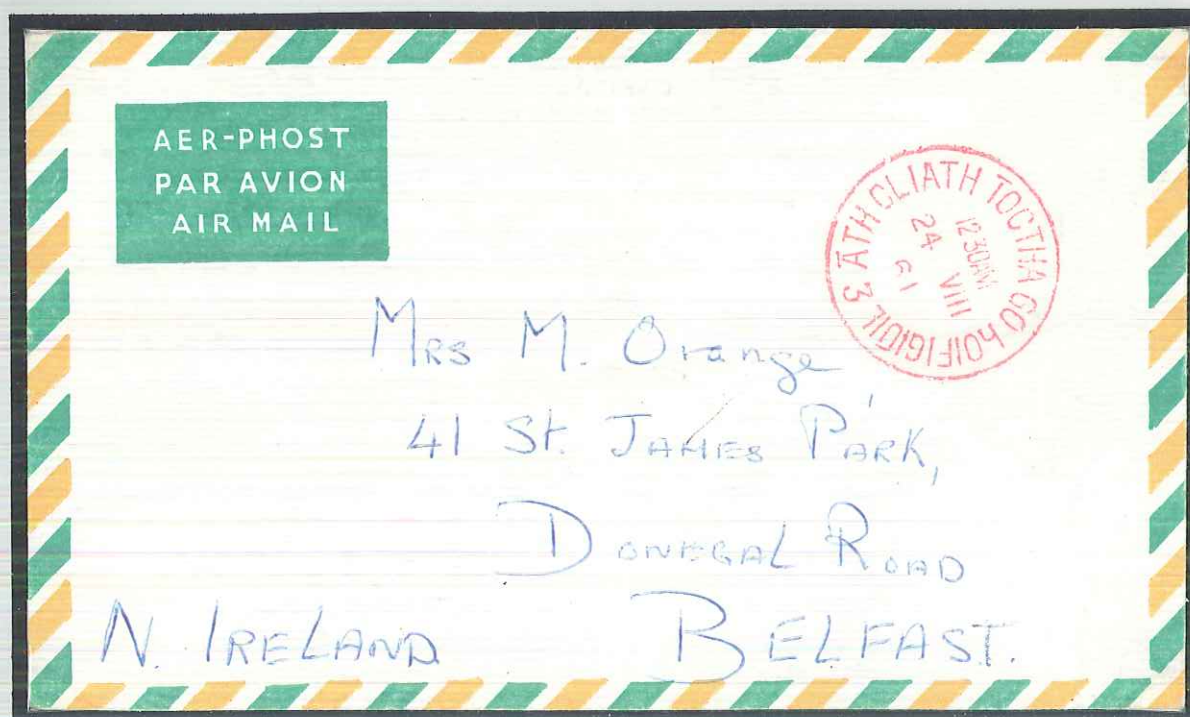 AER-PHOST
PAR AVION
AIR MAIL
ÁTH CLIATH TOCTHA GO hOIFIGIÚIL 3
12 30AM
24 VIII
61
Mrs M. Orange
41 St. JAMES PARK,
DONEGAL ROAD
N. IRELAND BELFAST.